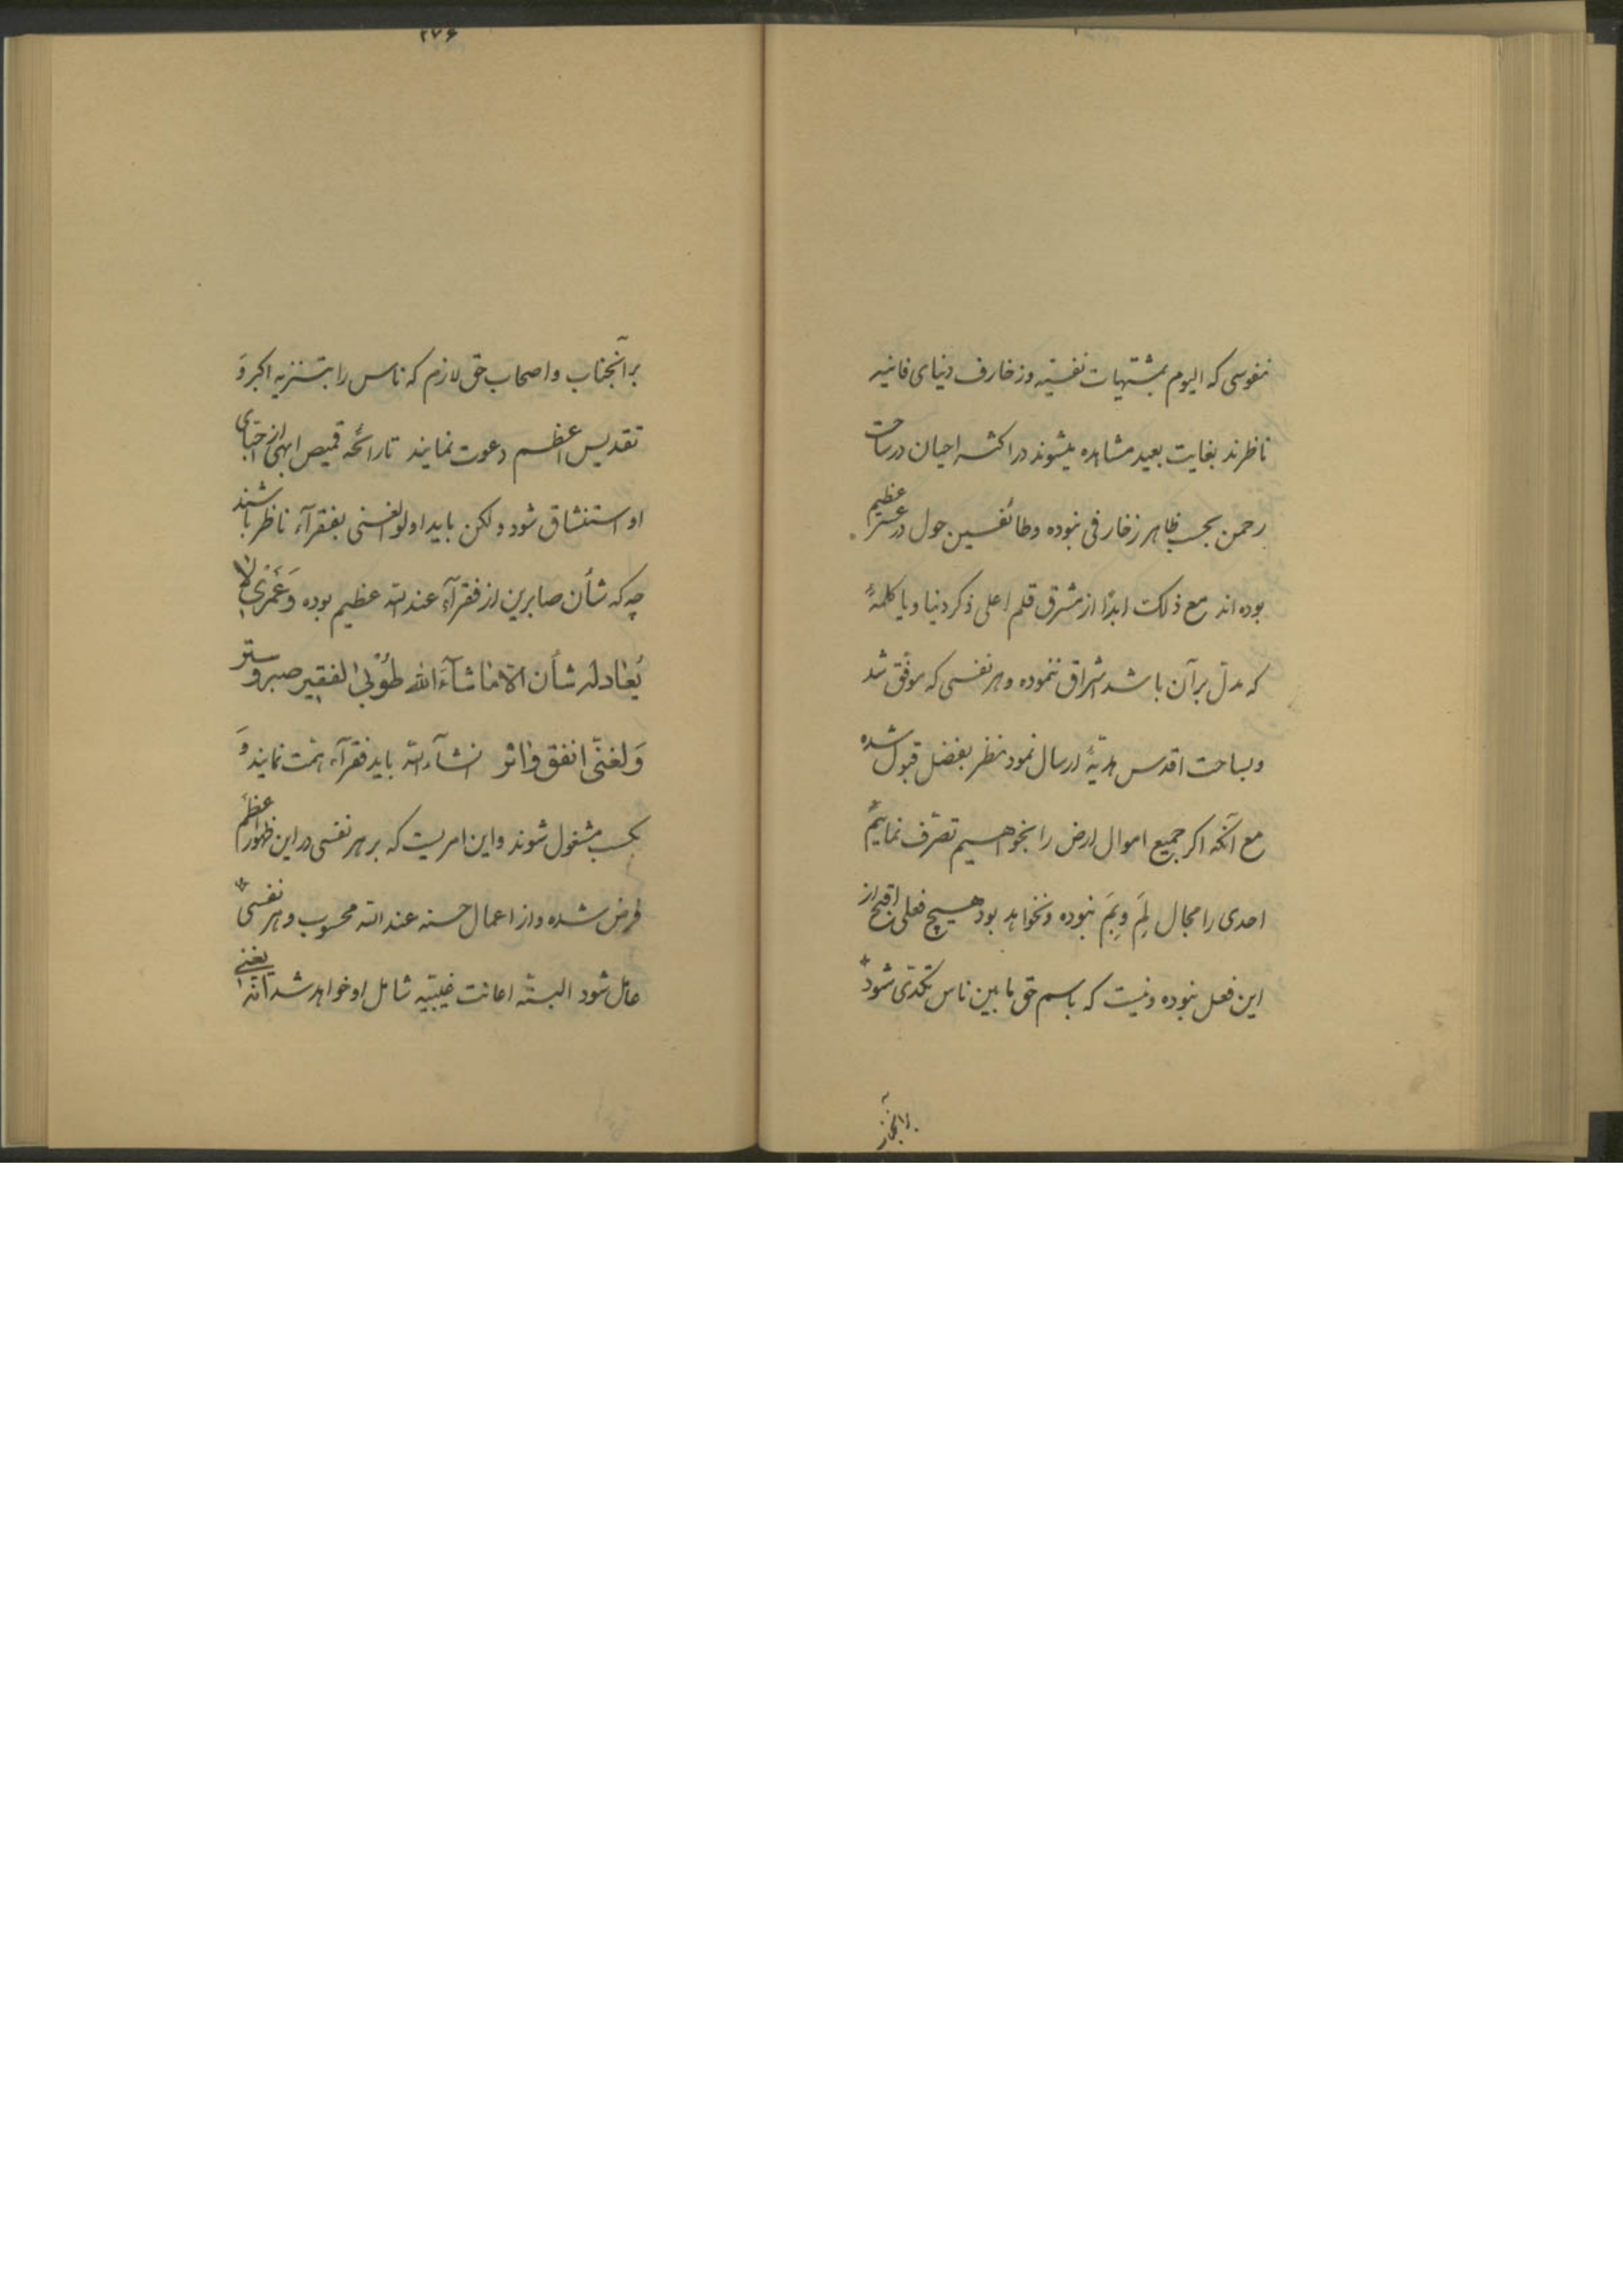 نفوسی که الیوم بمشتهیات نفسیّه و زخارف دنیای فانیه
ناظرند بغایت بعید مشاهده میشوند در اکثر احیان در ساحت
رحمن بحسب ظاهر زخارفی نبوده و طائفین حول در عسر عظیم
بوده‌اند مع ذلک ابدًا از مشرق قلم اعلی ذکر دنیا و یا کلمهٔ
که مدلّ بر آن باشد اشراق ننموده و هر نفسی که موفّق شد
و بساحت اقدس هدیّهٔ ارسال نمود نظر بفضل قبول شده
مع آنکه اکر جمیع اموال ارض را بخواهیم تصرّف نمائیم
احدی را مجال لِمَ وَ بِمَ نبوده و نخواهد بود هیچ فعلی اقبح از
این فعل نبوده و نیست که باسم حق ما بین ناس تکدّی شود
بر آنجناب
۲۷۶
بر آنجناب و اصحاب حق لازم که ناس را بتنزیه اکبر وَ
تقدیس اعظم دعوت نمایند تا رائحه قمیص ابهی از احبّای
او استنشاق شود ولکن باید اولو الغنی بفقرآء ناظر باشند
چه که شأن صابرین از فقرآء عند الله عظیم بوده وَ عَمْرِی لا
یُعادله شأن الّا ما شآءَ الله طُوْبی لفقیر صبر و ستر
وَ لغنیّ انفق و اثر انشآءالله باید فقرآء همّت نمایند وَ
بکسب مشغول شوند و این امریست که بر هر نفسی در این ظهور اعظم
فرض شده و از اعمال حسنه عند الله محسوب و هر نفسی
عامل شود البتّه اعانت غیبیّه شامل او خواهد شد انّه یغنی